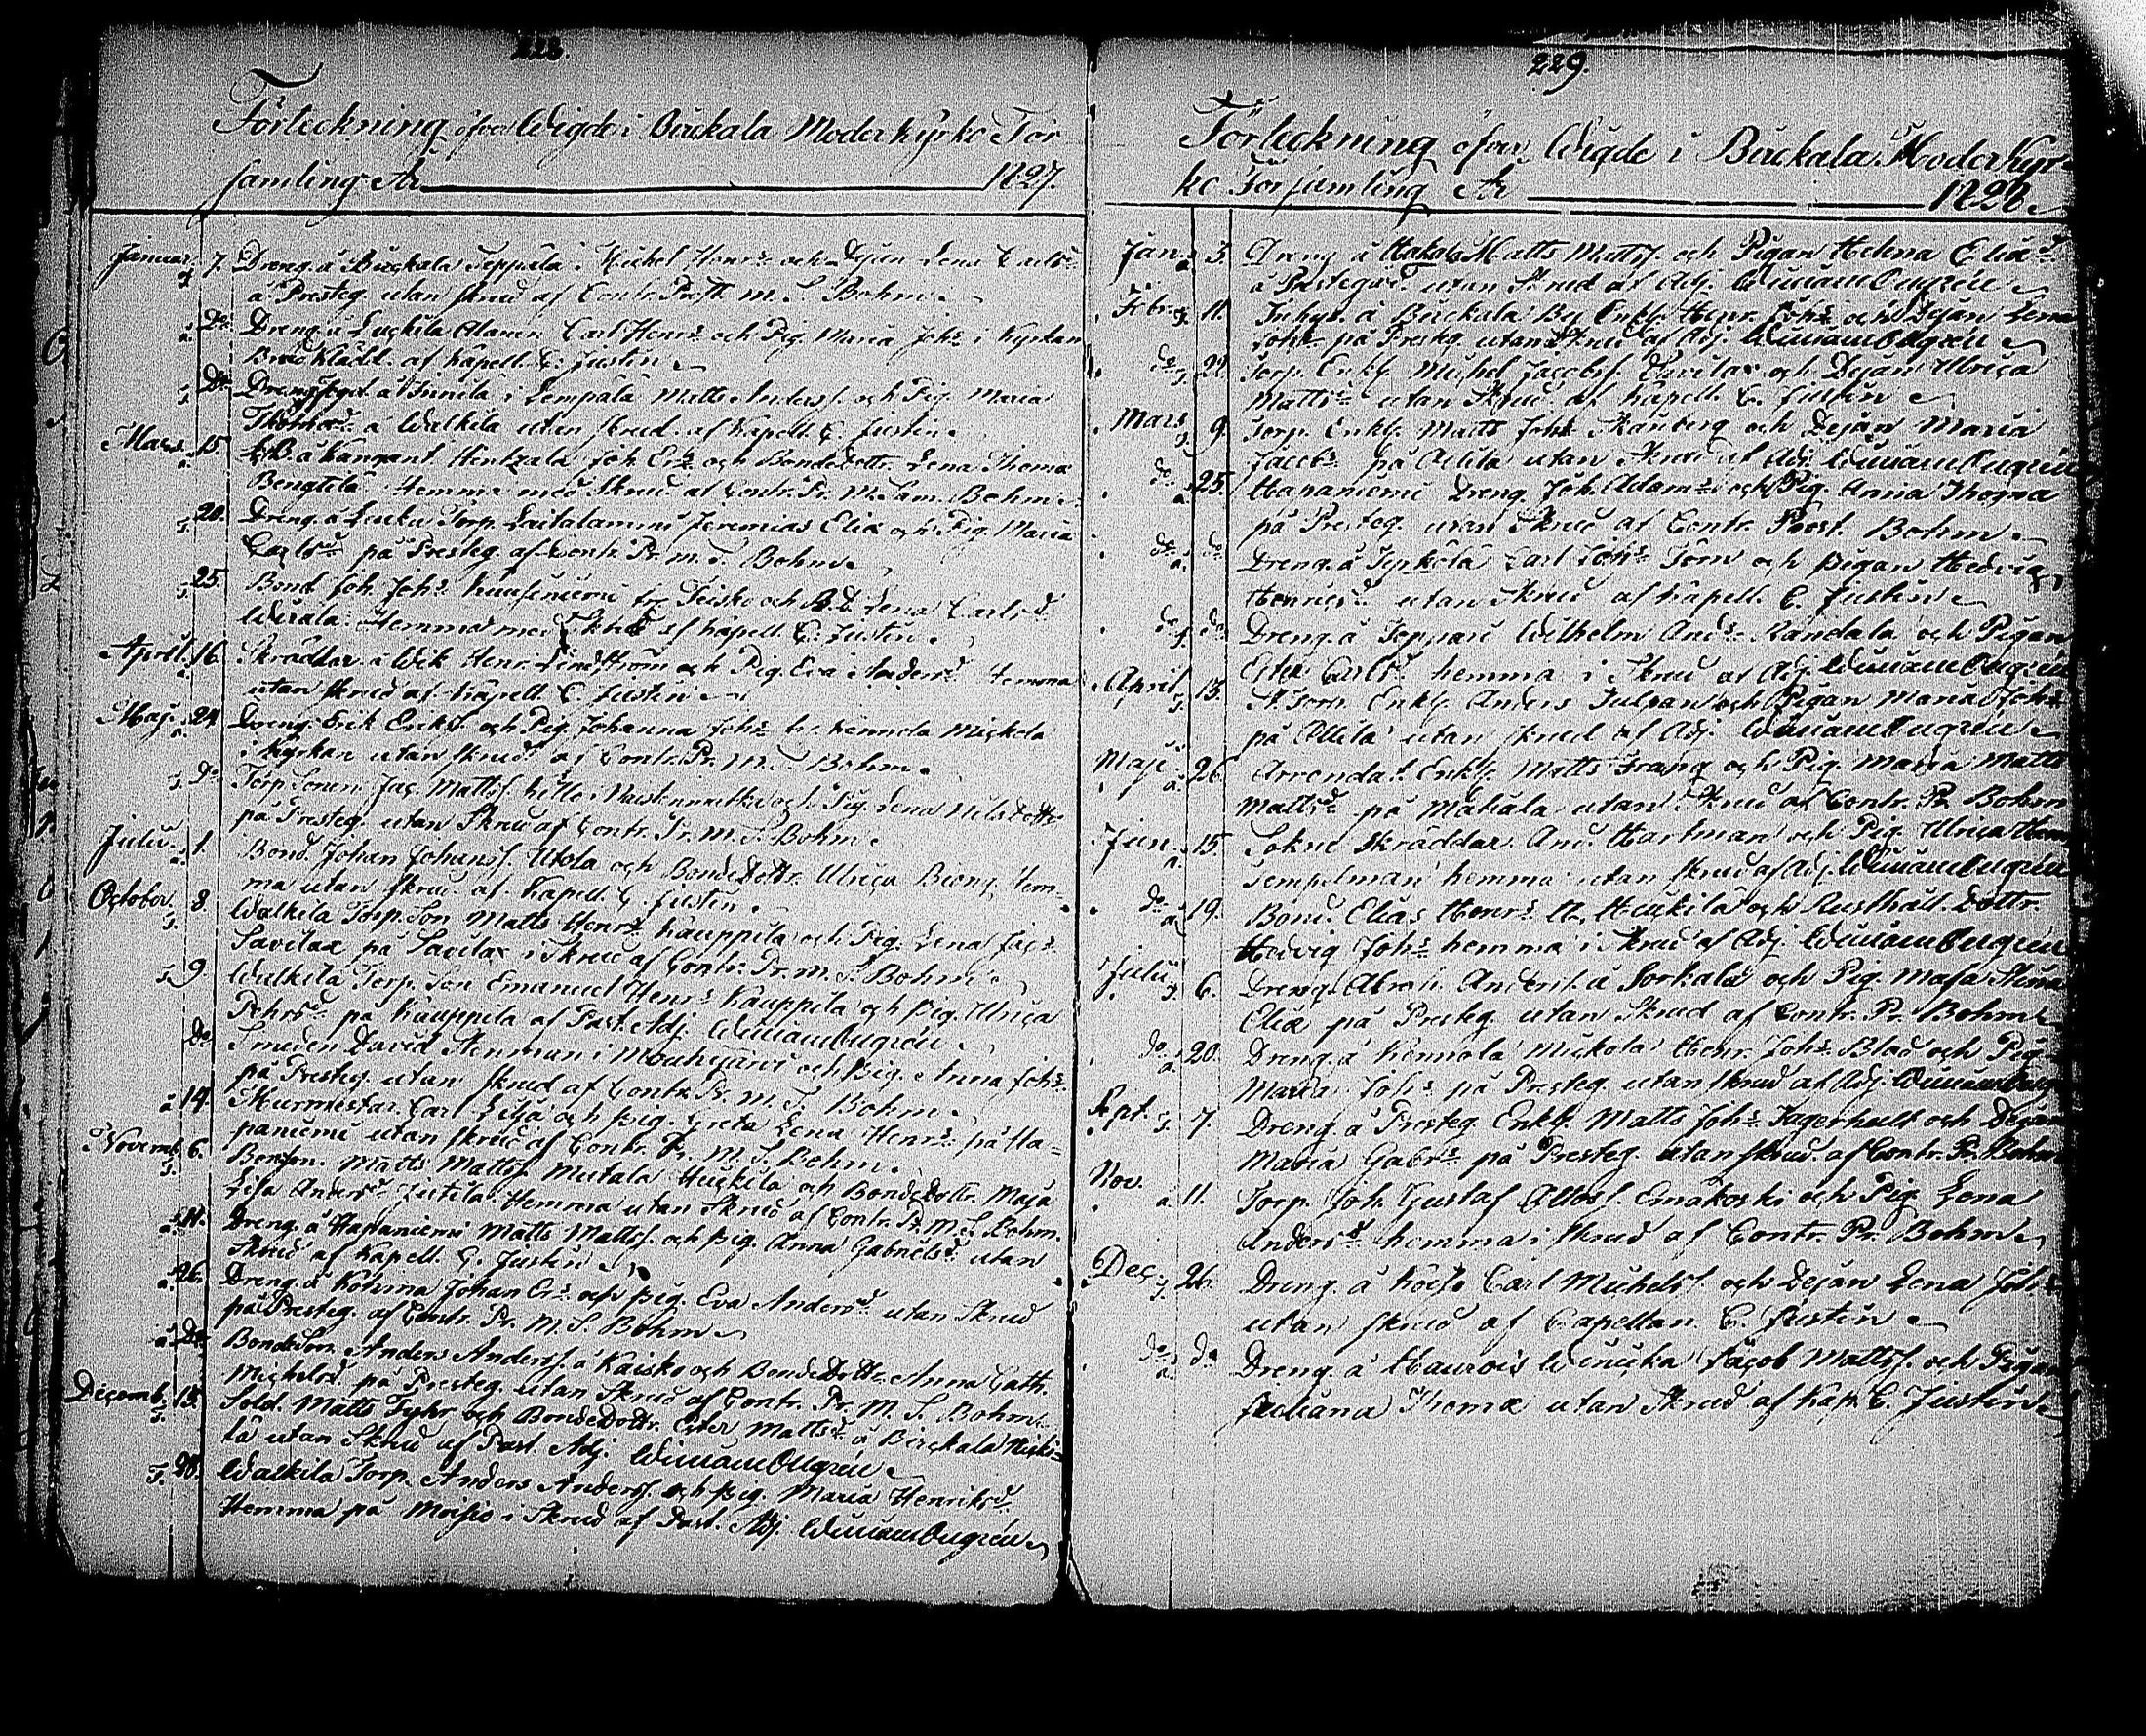 228.
Förteckning öfver Wigde i Birckala Moderkyrko För
samling År 1827.
Januar. 7. Dreng. å Birckala Seppälä Michel Henrs och Dejan Lena Carls
å Presteg. utan skrud af Contr. Prost. M. S. Bohm.
Do Dreng. å Luckila Carl Henrs och Pig. Maria Johs i Kyrkan
Brud Klädd. af Kapell. C. Justin
Do Dreng i Lempälä Matts Anderss. och Pig. Maria
Thomæ å Walkila utan skrud af Kapell. C. Justin.
Mars. 15. å Kangant Joh. Ers och Bondedottr. Lena Thomæ
Bengtilä Hemma med Skrud af Contr. Pr. M. Sam. Bohm.
20. Dreng. å Torp. Laitalammi Jeremias Eliæ och Pig. Maria
Carlsd. på Presteg. af Contr. Pr. M. S. Bohm.
25. Bond. Joh. Johs och B.D. Lena Carlsd.
Hemma med Skrud af Kapell. C. Justin.
April. 16. Skräddar. å Wik Henr. Lindström och Pig. Eva Andersd. Hemma
utan skrud af Kapell. C. Justin
Maj. 24 Dreng Erik Erikss. och Pig. Johanna Johs Kennola Mickola
i Kyrkan utan skrud af Contr. Pr. M. S. Bohm.
Do Torp. Sonen Jac. Mattss. och Pig. Lena Nilsdottr
på Presteg. utan Skrud af Contr. Pr. M. S. Bohm.
Julii. 1. Bond. Johan Johanss. Utola och Bondedottr. Ulrica Hem-
ma utan skrud af Kapell. C. Justin.
October. 8. Walkila Torp. Son Matts Henrs Kauppila och Pig. Lena Jacs
Savilax på Savilax i Skrud af Contr. Pr. M. S. Bohm.
9. Walkila Torp. Son Emanuel Henrs Kauppila och Pig. Ulrica
Pehrsd. på Kauppila af Past. Adj.
Do Smeden David Stenman i Mouhijärvi och Pig. Anna Johs
på Presteg. utan skrud af Contr. Pr. M. S. Bohm.
14. Murmestar. Carl Lilja och Pig. Greta Lena Henrs på Ha-
paniemi utan skrud af Contr. Pr. M. S. Bohm.
Novemb. 6. Matts Mattss. Mutala Huckila och Bondedottr. Maja
Lisa Andersd. Jutila Hemma utan Skrud af Contr. Pr. M. S. Bohm.
11. Dreng. å Hapaniemi Matts Mattss. och Pig. Anna Gabrielsd. utan
Skrud af Kapell. C. Justin
26. Dreng. å Kohma Johan Ers och Pig. Eva Andersd. utan Skrud
på Presteg. af Contr. Pr. M. S. Bohm
Do Bondeson. Anders Anderss. å Kaisko och Bondedottr. Anna Cath.
Michelsd. på Presteg. utan Skrud af Contr. Pr. M. S. Bohm.
Decemb. 13. Sold. Matts Fyhr och Bondedottr. Ester Mattsd. å Birckala
lä utan Skrud af Past. Adj.
28. Walkila Torp. Anders Anderss. och Pig. Maria Henriksd.
Hemma på Moisio i Skrud af Past. Adj.
229.
Förteckning öfver Wigde i Birckala Moderkyr-
ko Församling År 1828.
Jan. 3. Dreng å Matts Mattss. och Pigan Helena Eliæd.
å Prestegård utan Skrud af Adj.
Febr. 11. Inhys. å Birckala By Enkl. Henr. Johs och Dejan Lena
Johs på Presteg. utan Skrud af Adj.
do 24 Torp. Enkl. Michel Jacobss. Savilax och Dejan Ulrica
Matts utan Skrud af Kapell. C. Justin
Mars 9 Torp. Enkl. Matts Joh. och Dejan Maria
Jacobs på utan Skrud af Adj.
do 25. Hapaniemi Dreng. Joh. Adams och Pig. Anna Thomæ
på Presteg. utan Skrud af Contr. Prost. Bohm.
do do Dreng. å Carl Johs Törn och Pigan Hedvig
Henricsd. utan Skrud af Kapell. C. Justin
do do Dreng. å Wilhelm Ands Randala och Pigan
Ester Carlsd. hemma i Skrud af Adj.
April. 13. Enkl. Anders Tulpan och Pigan Maria Johs
på utan skrud af Adj.
Maji 26. Arrendat. Enkl. Matts Frang och Pig. Maria Matts
Mattsd. på Mahala utan Skrud af Contr. Pr. Bohm
Jun. 15. Sokne Skräddar. And. Hartman och Pig. Ulrica
Tempelman hemma utan skrud af Adj.
do 19. Bond. Elias Henrs Huckila och Rusthåll. Dottr.
Hedvig Johs hemma i Skrud af Adj.
Julii 6. Dreng. Abrah. Anderss. å Sorkala och Pig. Maja Stina
Eliæ på Presteg. utan Skrud af Contr. Pr. Bohm
do 20. Dreng. å Kennola Mickola Henr. Johs Blad och Pig.
Maria Johs på Presteg. utan Skrud af Adj.
Sept. 7. Dreng. å Presteg. Enkl. Matts Johs Jagerhult och Dejan
Maria Gabrs på Presteg. utan skrud. af Contr. Pr. Bohm
Nov. 11. Torp. Joh. Gustaf Ottoss. Emäkoski och Pig. Lena
Andersd. hemma i skrud af Contr. Pr. Bohm
Dec. 26. Dreng. å Carl Michelss. och Dejan Lena Joh
utan skrud af Capellan. C. Justin
do do Dreng. å Jacob Mattss. och Pigan
Juliana Thomæ utan Skrud af Kap. C. Justin